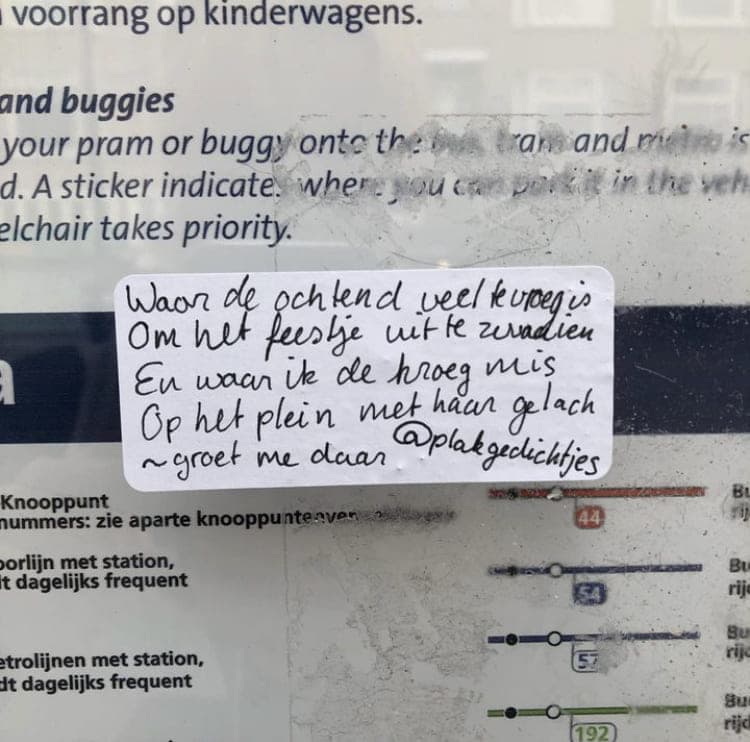 voorrang op kinderwagens.
and buggies
your pram or buggy onto the bus, tram and metro is
d. A sticker indicates where you can park it in the veh
elchair takes priority.
Waar de ochtend veel te vroeg is
Om het feestje uit te zwaaien
En waar ik de kroeg mis
Op het plein met haar gelach
~groet me daar @plakgedichtjes
a
Knooppunt
nummers: zie aparte knooppunten
44
Bu
rij
oorlijn met station,
dt dagelijks frequent
54
Bu
rijd
etrolijnen met station,
dt dagelijks frequent
57
Bu
rijd
192
Bu
rijd